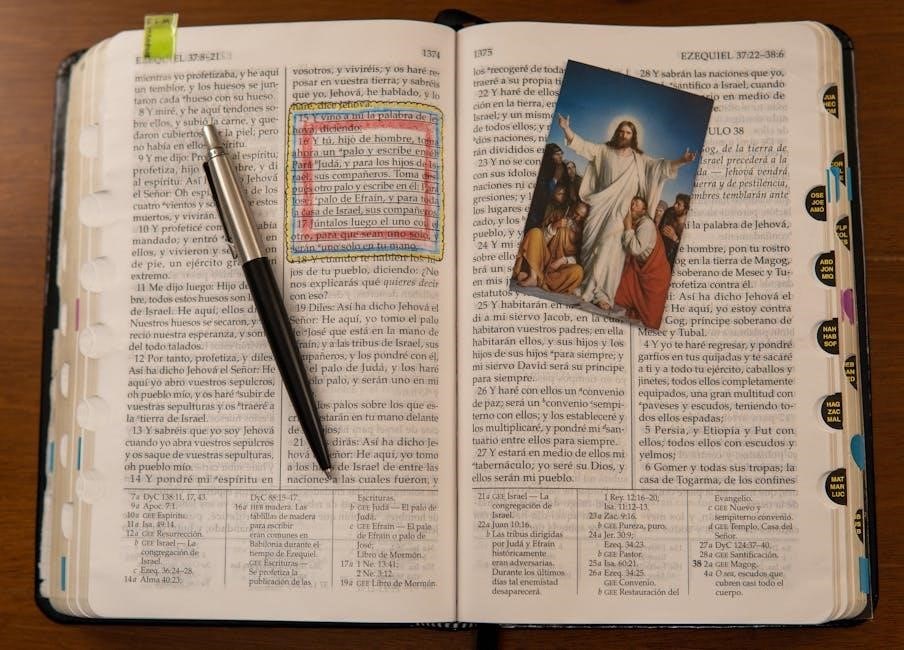 EZEQUIEL 37:8–21
1374
mientras yo profetizaba, y he aquí
un temblor, y los huesos se jun-
taron cada ᵃhueso con su hueso.
8 Y miré, y he aquí tendones so-
bre ellos, y subió la carne, y que-
daron cubiertos por la piel; pero
no había en ellos espíritu.
9 Y me dijo: Profetiza al espíritu;
profetiza, hijo de hombre, y di
al espíritu: Así ha dicho Jehová el
Señor: Oh espíritu, ven de los
cuatro ᵃvientos y sopla sobre estos
muertos, y vivirán.
10 Y profeticé como me había
mandado; y entró ᵃespíritu en
ellos, y vivieron y se
de pie, un ejército grande en
extremo.
11 Me dijo luego: Hijo de
bre, todos estos huesos son la
de Israel. He aquí, ellos dicen:
Nuestros huesos se secaron, y
reció nuestra esperanza, y somos
del todo talados.
12 Por tanto, profetiza, y diles:
Así ha dicho Jehová el Señor: He
aquí yo abro vuestros sepulcros,
oh pueblo mío, y os haré ᵃsubir de
vuestras sepulturas y os ᵇtraeré a
la ᶜtierra de Israel.
13 Y sabréis que yo soy Jehová
cuando yo abra vuestros sepulcros
y os saque de vuestras sepulturas,
oh pueblo mío.
14 Y pondré mi ᵃespíritu en
vosotros, y viviréis, y os haré re-
posar en vuestra tierra; y sabréis
que yo, Jehová, he hablado, y lo
haré, dice Jehová.
15 Y vino a mí la palabra de Je-
hová, diciendo:
16 Y tú, hijo de hombre, toma
ahora un ᵃpalo y escribe en él:
Para ᵇJudá, y para los hijos de Is-
rael, sus compañeros. Toma des-
pués otro palo y escribe en él: Para
José, ᶜpalo de Efraín, y para toda
la casa de Israel, sus compañeros.
17 Júntalos luego el uno con el
otro, para que sean uno solo, y
serán ᵃuno solo en tu mano.
18 Y cuando te hablen los hi-
jos de tu pueblo, diciendo: ¿No
nos explicarás qué quieres decir
con eso?
19 Diles: Así ha dicho Jehová el
Señor: He aquí, yo tomo el palo
de ᵃJosé que está en la mano de
Efraín, y a las tribus de Israel, sus
compañeros, y los pondré con él,
el palo de Judá, y los haré
palo, y serán uno en mi
los palos sobre los que es-
estarán en tu mano delante
de ojos;
21 dirás: Así ha dicho Je-
hová el Señor: He aquí, yo tomo
a los hijos de Israel de entre las
naciones a las cuales fueron, y
7a DyC 138:11, 17, 43.
9a Apoc. 7:1.
10a GEE Espíritu.
11a Isa. 49:14.
12a GEE Resurrección.
b GEE Israel — La
congregación de
Israel.
c Ezeq. 36:24–28.
14a Alma 40:23;
DyC 88:15–17.
16a HEB madera. Las
tablillas de madera
para escribir
eran comunes en
Babilonia durante el
tiempo de Ezequiel.
GEE Escrituras —
Se profetiza la
publicación de las
Escrituras.
b GEE Judá — El palo de
Judá.
c GEE Efraín — El palo
de Efraín o palo de
José;
Libro de Mormón.
17a 1 Ne. 13:41;
2 Ne. 3:12.
19a GEE Libro de Mormón.
1375
EZEQUIEL 37:22–38:6
los ᵇrecogeré de todas
traeré a su propia tierra
22 Y haré de ellos
ción en la tierra, en
Israel, y un mismo
de todos ellos; y
dos naciones, ni
rán divididos en
23 Y no se con
con sus ídolos
naciones ni
gresiones; y los
los lugares
cado, y los
pueblo, y
24 Y mi
sobre ellos
brá un
mis
estatutos y
25 Y habitarán en
di a mi siervo Jacob, en la cual
habitaron vuestros padres; en ella
habitarán ellos, y sus hijos y los
hijos de sus hijos ᵃpara siempre; y
mi siervo David será su príncipe
para siempre.
26 Y haré con ellos un ᵃconvenio
de paz; será un ᵇconvenio ᶜsempi-
terno con ellos; y los estableceré y
los multiplicaré, y pondré mi ᵈsan-
tuario entre ellos para siempre.
27 Y estará en medio de ellos mi
ᵃtabernáculo; yo seré su Dios, y
ellos serán mi pueblo.
28 Y sabrán las naciones que yo,
ᵃsantifico a Israel, cuando
en medio de
CAPÍTULO 38
Gog, de la tierra de
Israel precederá a la
— Jehová vendrá
guerra y de pestilencia,
hombres temblarán ante
la palabra de Jehová,
hombre, pon tu rostro
en la tierra de Magog,
soberano de Mesec y Tu-
profetiza contra él.
Así ha dicho Jehová el
He aquí, yo estoy contra
Gog, príncipe soberano de
Mesec y Tubal.
4 Y yo te haré regresar, y pondré
garfios en tus quijadas y te sacaré
a ti y a todo tu ejército, caballos y
jinetes, todos ellos completamente
equipados, una gran multitud con
ᵃpaveses y escudos, teniendo to-
dos ellos espadas;
5 Persia, y Etiopía y Fut con
ellos; todos ellos con escudos y
yelmos;
6 Gomer y todas sus tropas; la
casa de Togarma, de los confines
21a GEE Israel — La
congregación de
Israel.
22a Juan 10:16.
b Las tribus dirigidas
por Judá y Efraín
históricamente
eran adversarias.
Durante los últimos
días tal enemistad
desaparecerá.
1 Rey. 12:16–20;
Isa. 11:12–13.
23a Zac. 9:16.
b GEE Pureza, puro.
24a Jer. 30:9;
Ezeq. 34:23.
b GEE Pastor.
25a Isa. 60:21.
26a Ezeq. 34:25.
GEE Convenio.
b GEE Restauración del
Evangelio.
c GEE Nuevo y
sempiterno convenio.
d GEE Templo, Casa del
Señor.
27a DyC 124:37–40.
28a GEE Santificación.
38 2a GEE Magog.
4a O sea, escudos que
cubren casi todo el
cuerpo.
OSE
JOE
AMÓ
ABD
JON
MIQ
NAH
HAB
SOF
HAG
ZAC
MAL
MAT
MAR
LUC